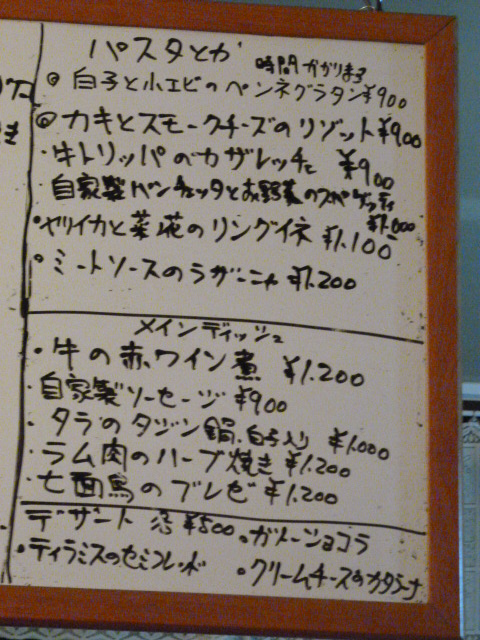 パスタとか 時間かかります
◎白子と小エビのペンネグラタン ¥900
◎カキとスモークチーズのリゾット ¥900
・牛トリッパのカザレッチェ ¥900
自家製パンチェッタとお野菜の ¥1,000
・ヤリイカと菜花のリングイネ ¥1,100
・ミートソースのラザニア ¥1,200
メインディッシュ
・牛の赤ワイン煮 ¥1,200
自家製ソーセージ ¥900
・タラのタジン鍋 白子入り ¥1,000
・ラム肉のハーブ焼き ¥1,200
・七面鳥のブレゼ ¥1,200
デザート 各¥500 ・ガトーショコラ
・ティラミス
・クリームチーズ